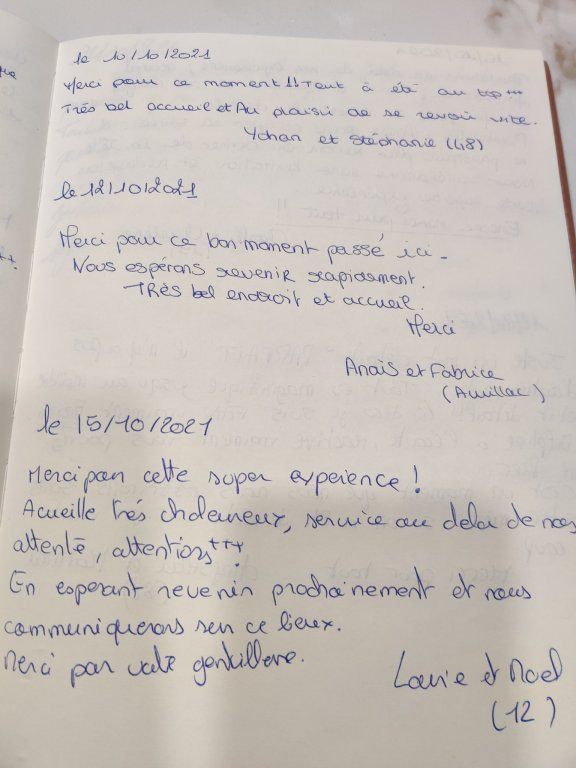 le 10/10/2021
Merci pour ce moment !! Tout à été au top !!!
Très bel accueil et Au plaisir de se revoir vite.
Yohan et Stéphanie (48)
le 12/10/2021
Merci pour ce bon moment passé ici -
Nous espérons revenir rapidement.
TRès bel endroit et accueil.
Merci
Anaïs et Fabrice
(Aurillac)
le 15/10/2021
Merci pour cette super experience !
Acueille très chaleureux, service au dela de nos
attente, attentions +++
En esperant revenir prochainement et nous
communiquerons sur ce lieux.
Merci par votre gentillesse.
et Noel
(12)